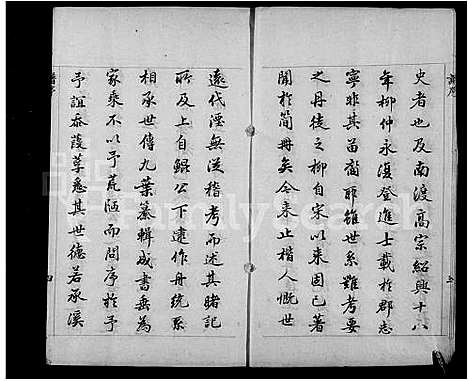 史者也及南渡高宗紹興十八
年柳仲永復登進士載於郡志
寧非其苗裔耶雖世系難考要
之丹徒之柳自宋以來固已著
聞於簡冊矣今來止楷人慨世
遠代湮無從稽考而述其睹記
所及上自鯤公下逮作舟統系
相承世傳九葉纂輯成書垂為
家乘不以予荒陋而問序於予
予誼忝葭莩悉其世德若承溪
FamilySearch